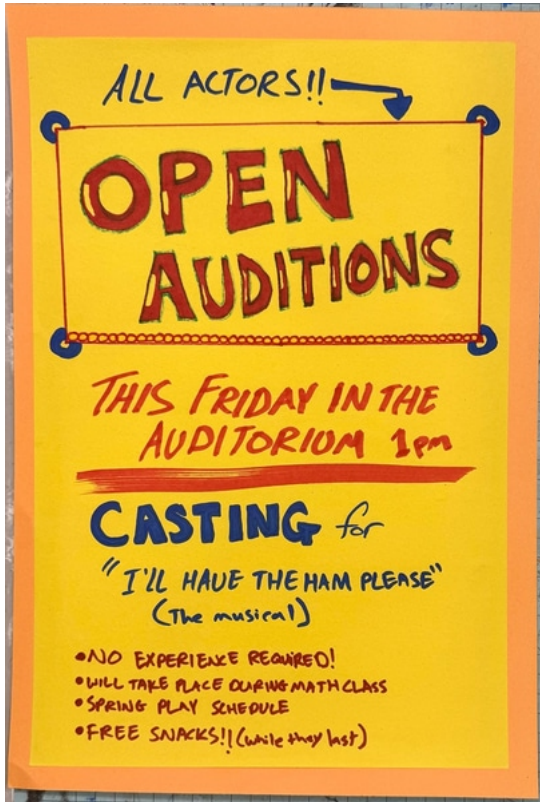 ALL ACTORS!!
OPEN
AUDITIONS
THIS FRIDAY IN THE
AUDITORIUM 1pm
CASTING for
"I'LL HAVE THE HAM PLEASE"
(The musical)
•NO EXPERIENCE REQUIRED!
•WILL TAKE PLACE DURING MATH CLASS
•SPRING PLAY SCHEDULE
•FREE SNACKS!! (while they last)